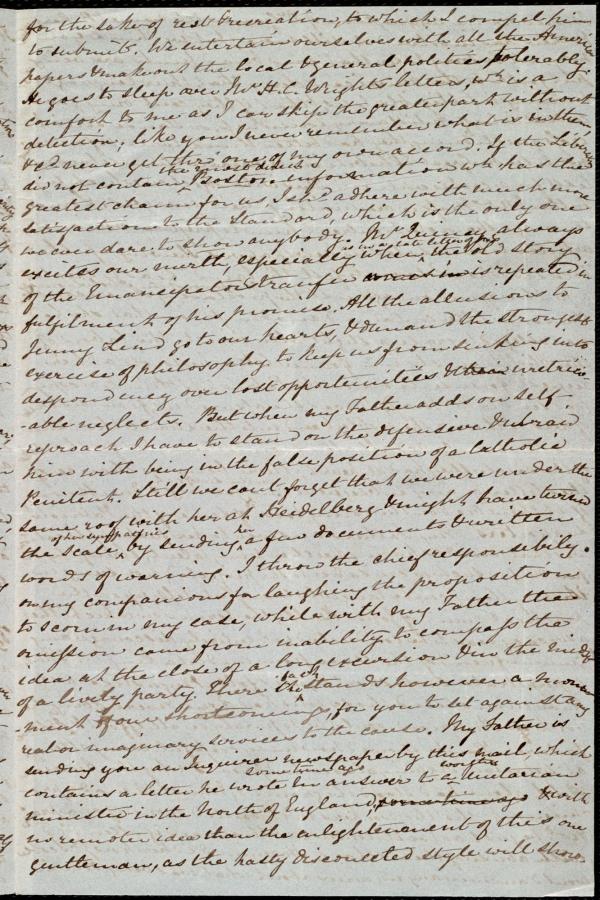 for the sake of rest & recreation, to which I compel him
to submit. We entertain ourselves with all the American
papers & make out the local & general politics tolerably.
He goes to sleep over Mr H. C. Wright's letters, wh. is a
comfort to me as I can skip the greater part without
detection; like you I never remember what is written,
& cd. never get thro' one of my own accord. If the Liberator
did not contain the Boston information wh. has the
greatest charm for us, I shd. adhere with much more
satisfaction to the Standard, which is the only one
we ever dare to show anybody. Mr Quincy always
excites our mirth, especially when, in a late letter of his, the old story
of the Emancipator transfer is repeated in
fulfilment of his promise. All the allusions to
Jenny Lind go to our hearts, & demand the strongest
exercise of philosophy to keep us from sinking into
despondency over lost opportunities & irretriev-
-able neglects. But when my Father adds on self
reproach I have to stand on the defensive & upbraid
him with being in the false position of a Catholic
Penitent. Still we can't forget that we were under the
same roof with her at Heidelberg & might have turned
the scale of her sympathies, by sending her a few documents & written
words of warning. I throw the chief responsibily.
on my companions for laughing the proposition
to scorn in my case, while with my Father the
omission came from inability to compass the
idea at the close of a long excursion & in the midst
of a lively party. There the fact stands however a monu-
ment of our shortcomings, for you to set against any
real or imaginary services to the cause. My Father is
sending you an Inquirer newspaper by this mail, which
contains a letter he wrote some time ago in answer to a worthy Unitarian
minister in the North of England, some time ago & with
no remoter idea than the enlightenment of this one
gentleman, as the hasty disconnected style will show.